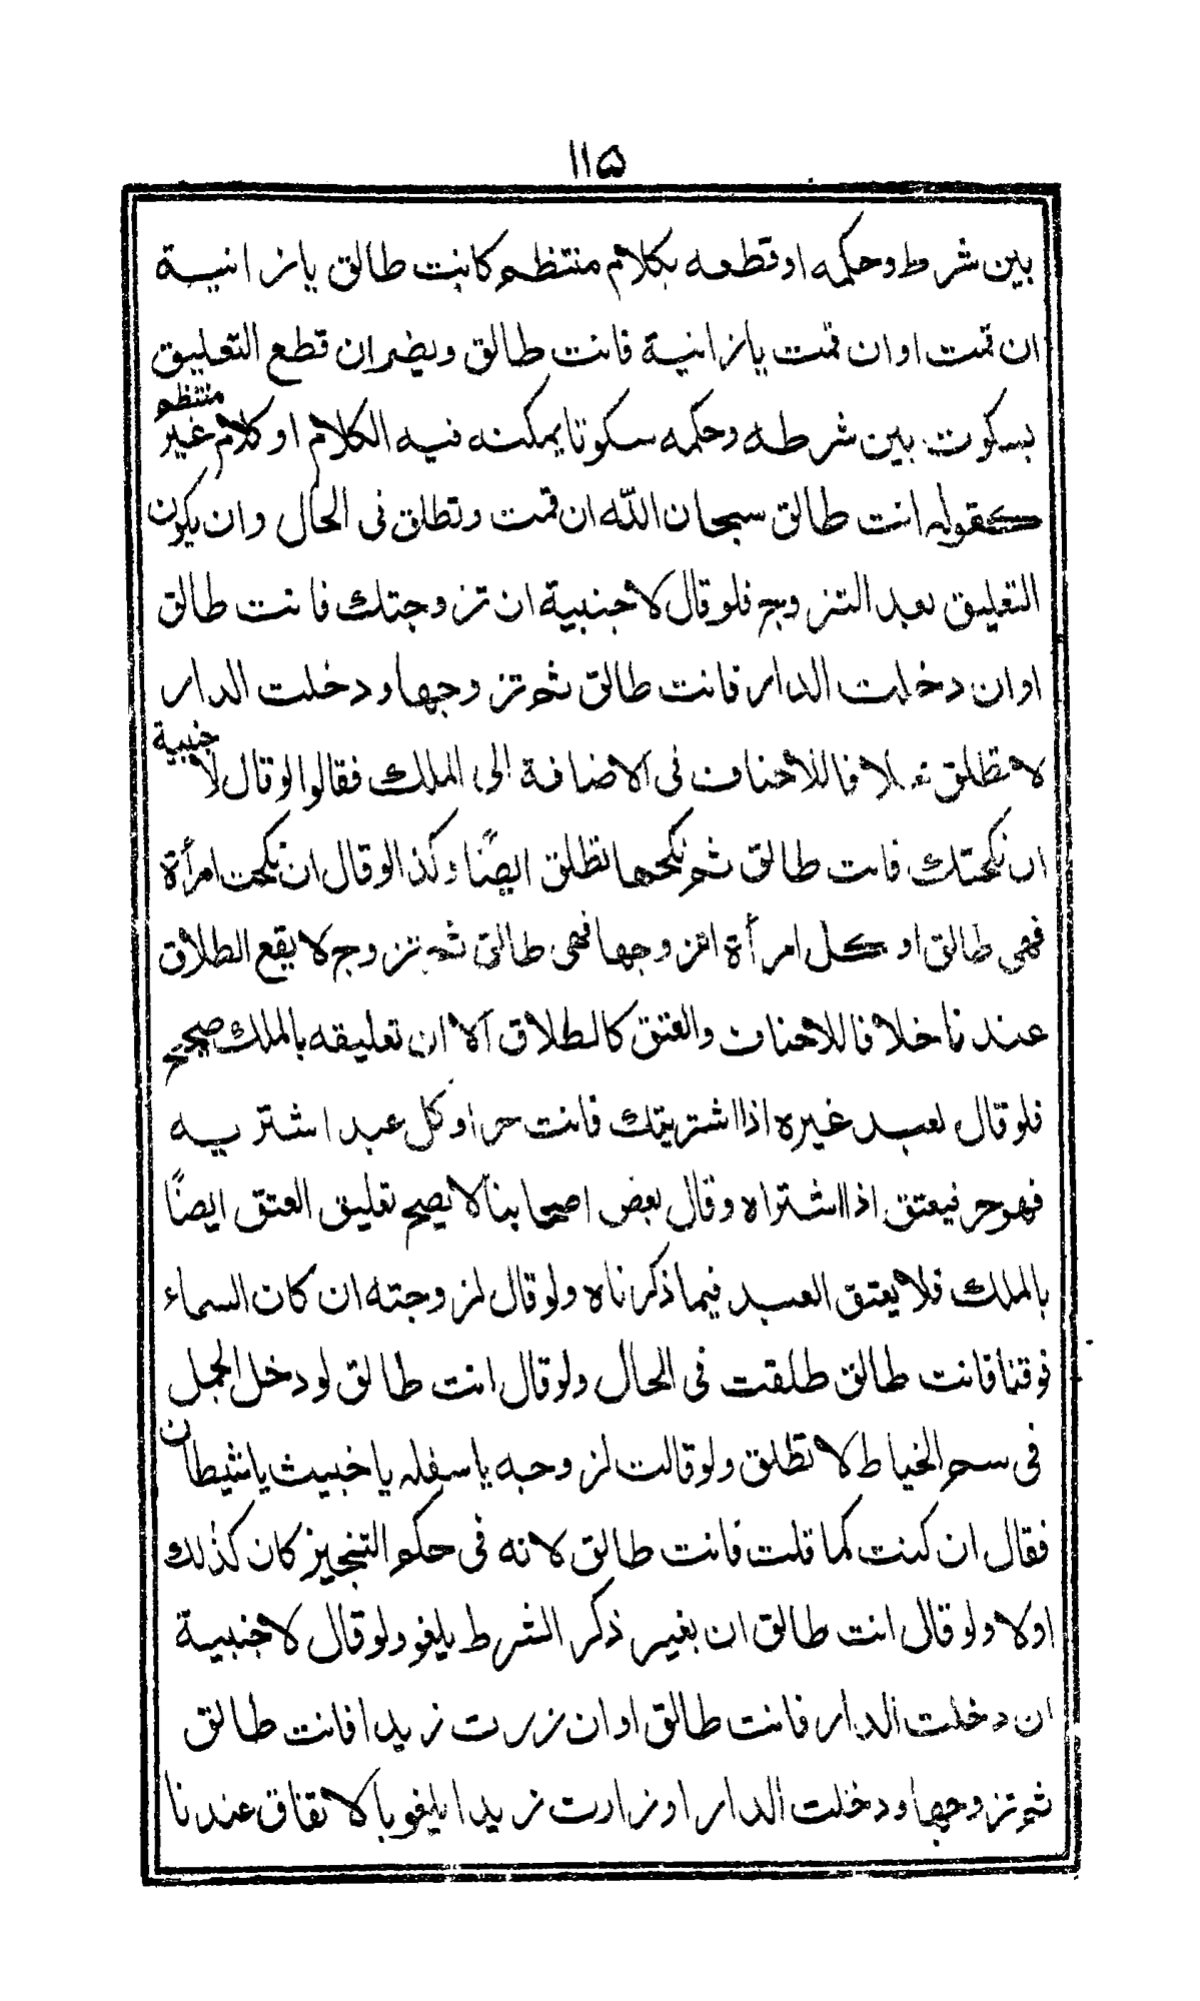 ١١۵
بين شرط وحكمه او قطعه بكلام منتظم كانت طالق يا زانية
ان قمت او ان قمت يا زانية فانت طالق ويضر ان قطع التعليق
بسكوت بين شرطه وحكمه سكوتا يمكنه فيه الكلام او كلام غير منتظم
كقوله انت طالق سبحان الله ان قمت وتطلق فى الحال وان يكون
التعليق بعد التزوج فلو قال لاجنبية ان تزوجتك فانت طالق
او ان دخلت الدار فانت طالق ثم تزوجها ودخلت الدار
لا تطلق خلافا للأحناف فى الاضافة الى الملك فقالوا لو قال لاجنبية
ان نكحتك فانت طالق ثم نكحها تطلق ايضًا وكذا لو قال ان نكحت امرأة
فهى طالق او كل امرأة اتزوجها فهى طالق ثم تزوج لا يقع الطلاق
عندنا خلافا للاحناف والعتق كالطلاق الا ان تعليقه بالملك صحيح
فلو قال لعبد غيره اذا اشتريتك فانت حر او كل عبد اشتريه
فهو حر فيعتق اذا اشتراه وقال بعض اصحابنا لا يصح تعليق العتق ايضًا
بالملك فلا يعتق العبد فيما ذكرناه ولو قال لزوجته ان كان السماء
فوقنا فانت طالق طلقت فى الحال ولو قال انت طالق لو دخل الجمل
فى سم الخياط لا تطلق ولو قالت لزوجه يا سفله يا خبيث يا شيطان
فقال ان كنت كما قلت فانت طالق لانه فى حكم التنجيز كان كذلك
اولا ولو قال انت طالق ان بغير ذكر الشرط يلغو ولو قال لاجنبية
ان دخلت الدار فانت طالق او ان زرت زيدا فانت طالق
ثم تزوجها ودخلت الدار او زارت زيدا يلغو بالاتفاق عندنا